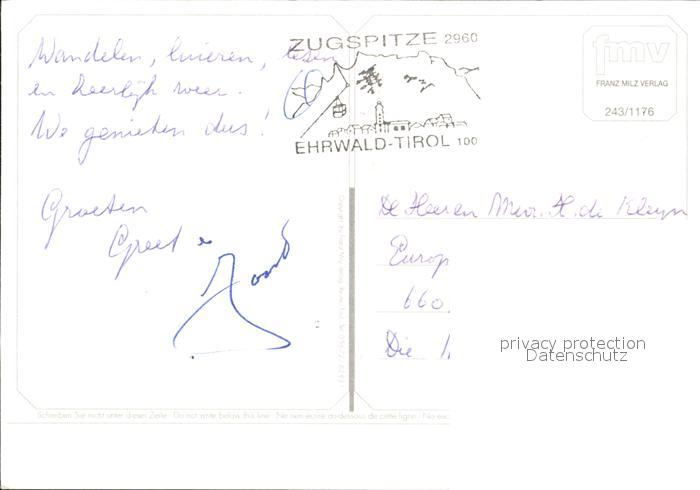 Wandelen, luieren, lezen
en heerlijk weer.
We genieten dus!
Groeten
Greet en
ZUGSPITZE 2960
EHRWALD-TIROL 100
fmv
FRANZ MILZ VERLAG
243/1176
De Heer en Mevr. H. de Kleyn
Europ
660
Die
privacy protection
Datenschutz
Schreiben Sie nicht unter dieser Zeile · Do not write below this line · Ne rien écrire au-dessous de cette ligne · No esc